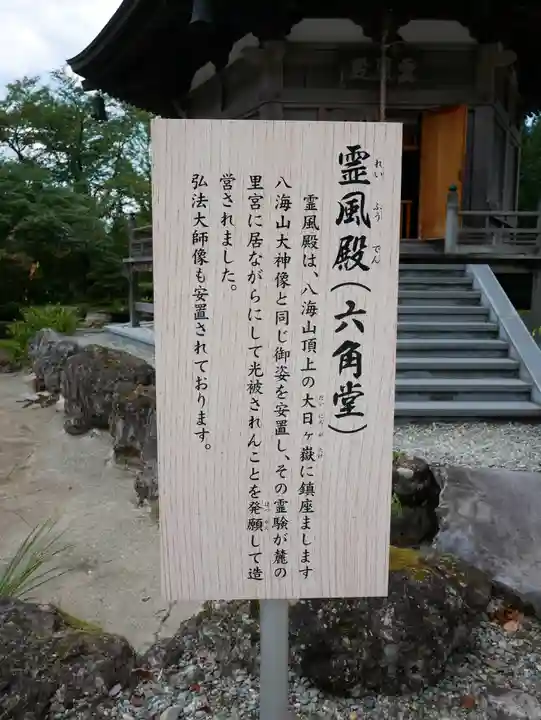 霊風殿(六角堂)
れいふうでん
霊風殿は、八海山頂上の大日ヶ嶽に鎮座まします
八海山大神像と同じ御姿を安置し、その霊験が麓の
里宮に居ながらにして光被されんことを発願して造
営されました。
弘法大師像も安置されております。